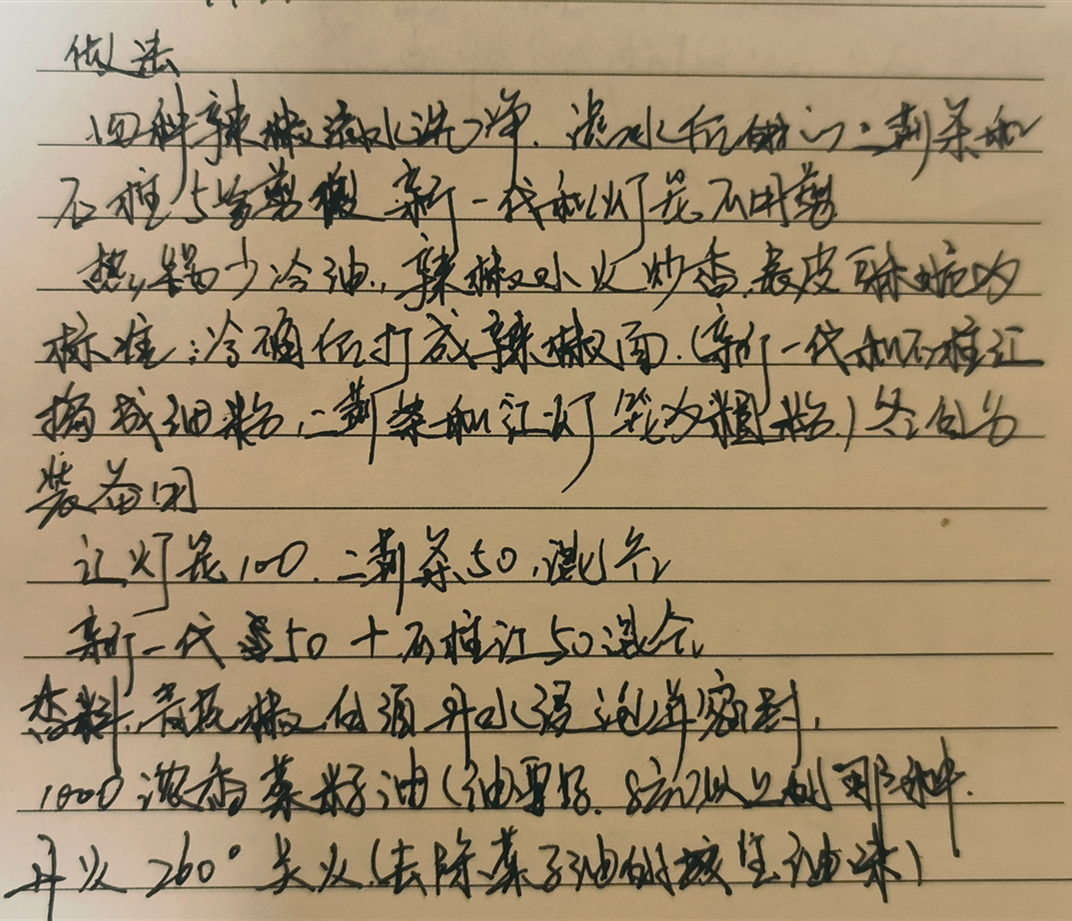 做法
四种辣椒流水洗净.滚水后的二荆条和
石柱与需剪 新一代和灯笼不用剪
热锅少冷油,辣椒小火炒香.表皮 为
标准;冷确后打成辣椒面.(新一代和石柱红
捣成细粉,二荆条和红灯笼为粗粉)各自分
装备用
让灯笼100.二荆条50,混合
新一代 50十石柱红50混合
香料,青花椒 须开水浸泡并密封,
1000浓香菜籽油(油要好. 以上的那种.
开火260°关火(去除菜子油的 生油味)